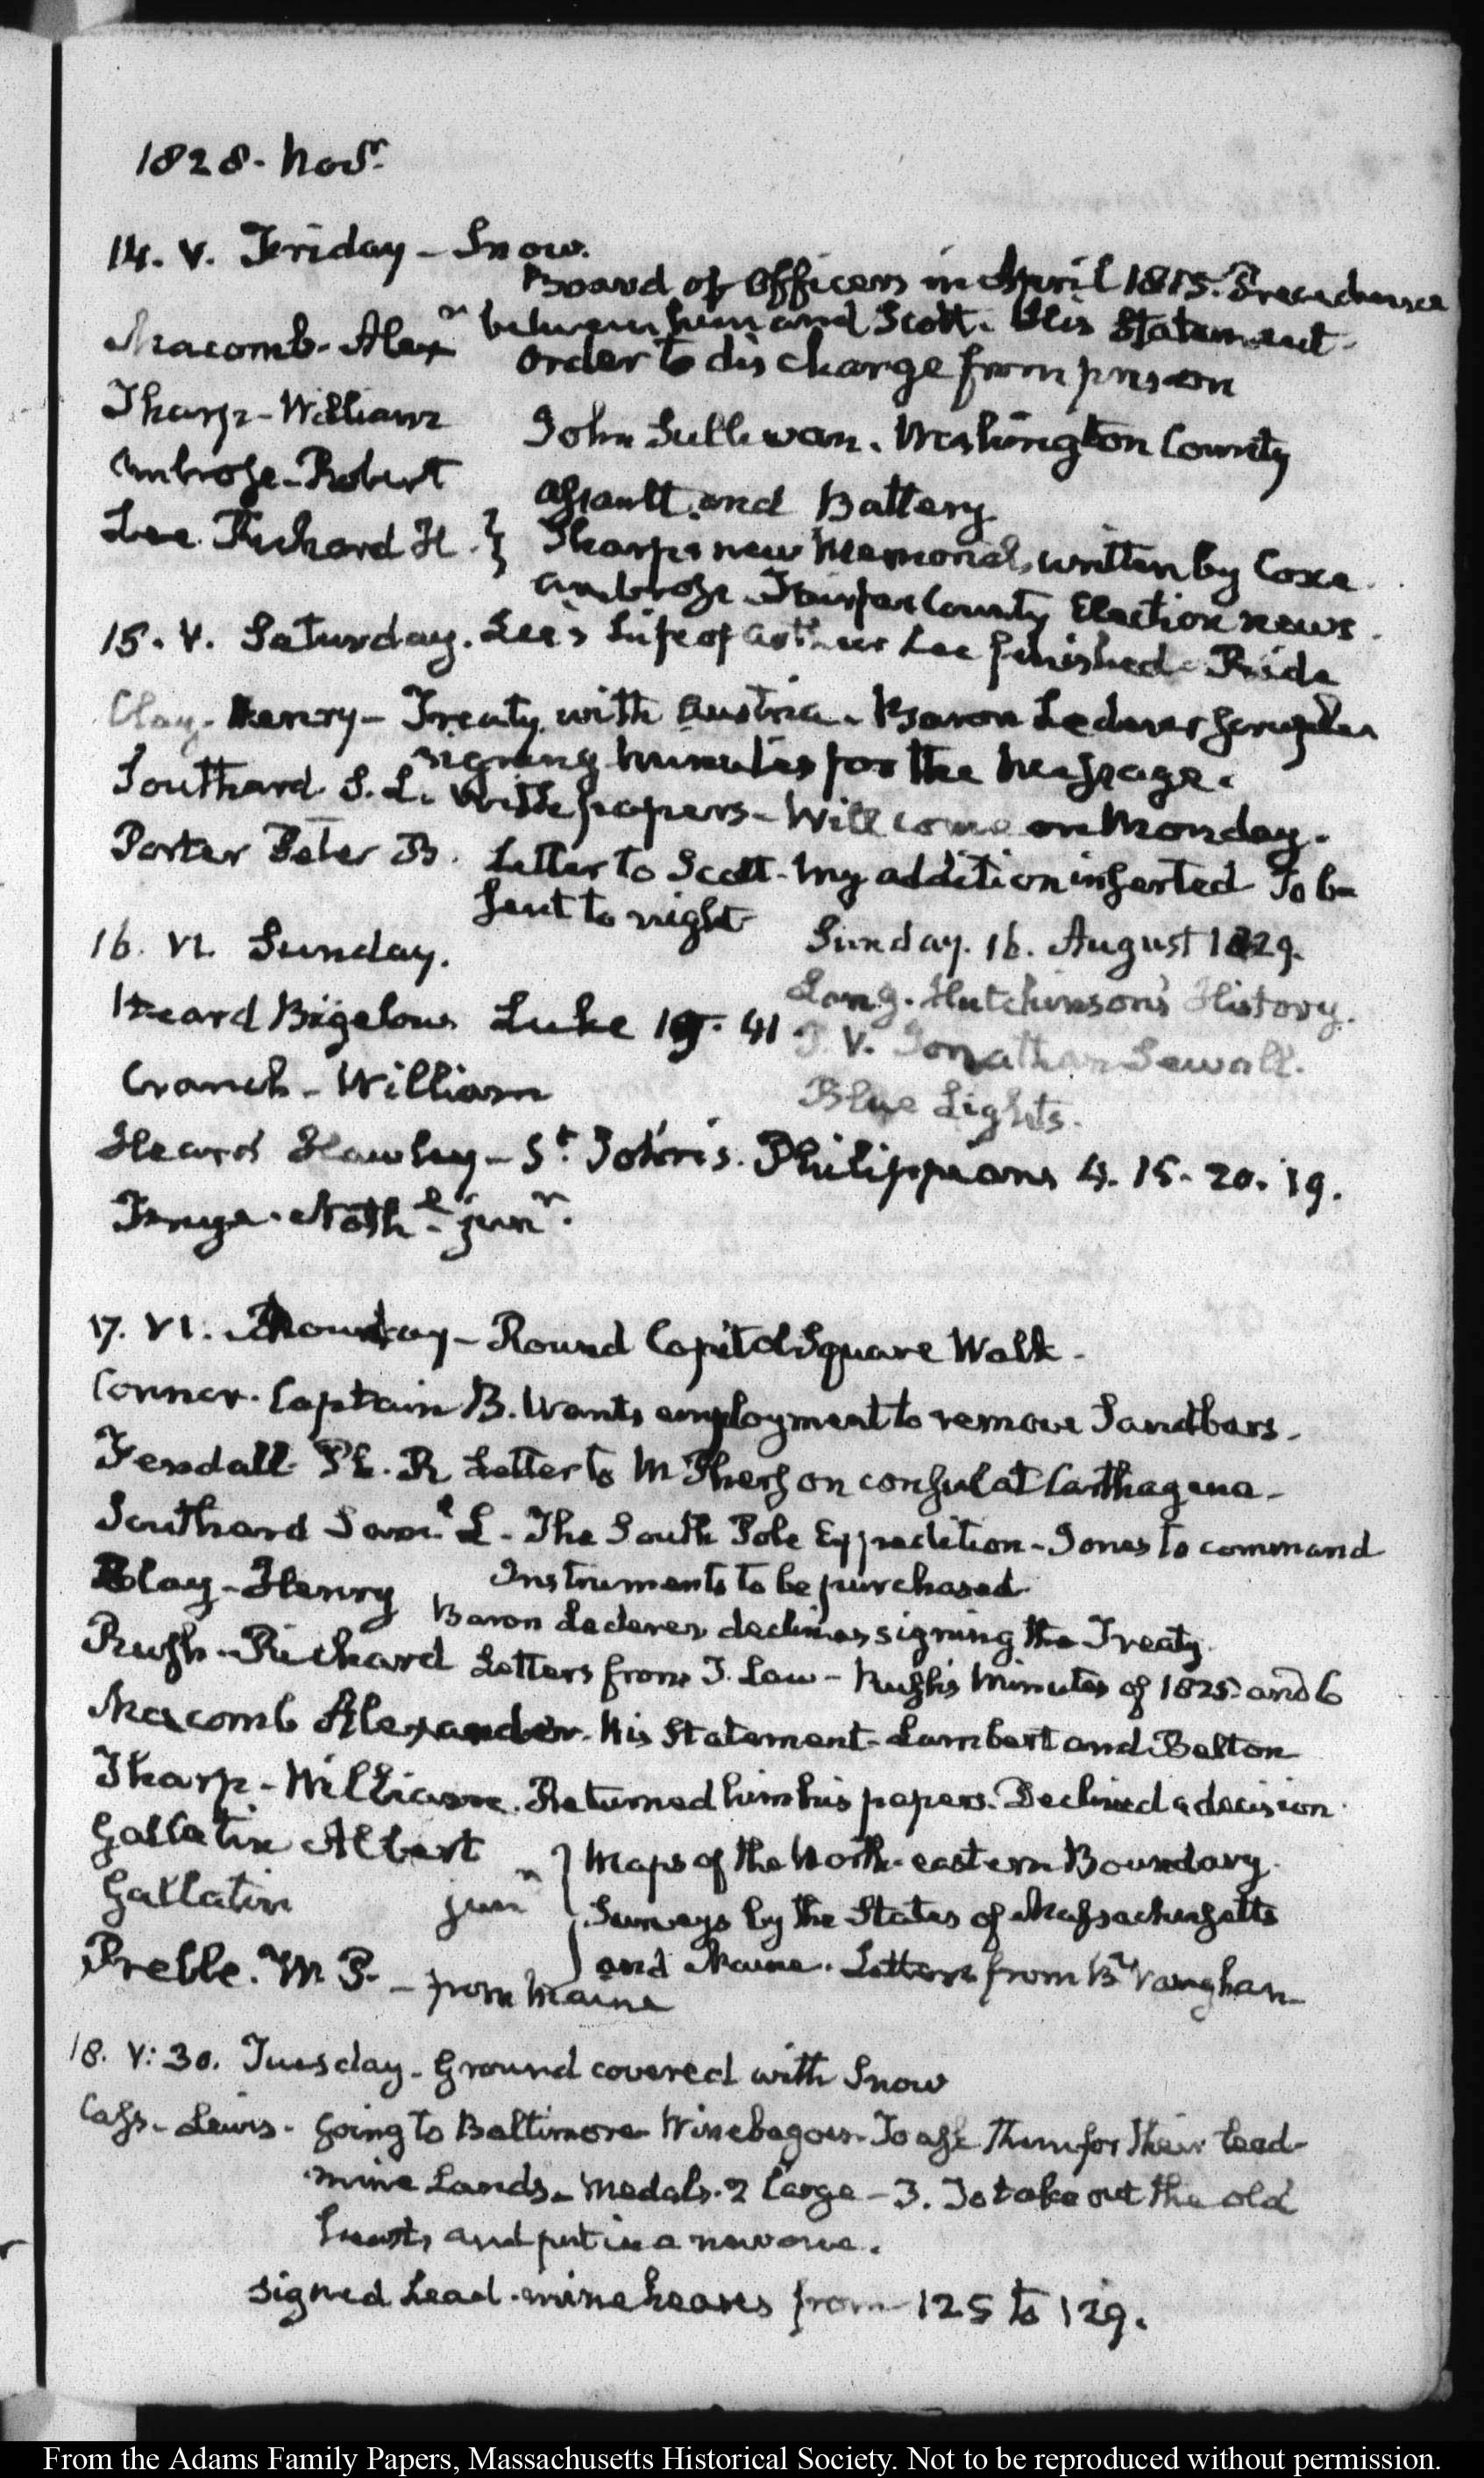 1828. Novr.
14. V. Friday - Snow.
Board of Officers in April 1815. Precedence
Macomb. Alexr between him and Scott. His Statement.
Order to discharge from prison
Tharp - William
John Sullivan. Washington County
Ambrose - Robert
assault and Battery
Lee Richard H. } Tharp's new Memorial, written by Coxe.
Ambrose Fairfax County Election news.
15. V. Saturday. Lee's Life of Arthur Lee finished. Ride
Clay. Henry - Treaty with Austria. Baron Lederer
signing Minutes for the Message.
Southard. S. L. With papers - Will come on Monday.
Porter Peter B. Letter to Scott - My addition inserted To be
sent to night
16. VI. Sunday.
Sunday. 16. August 1829.
Hutchinson's History.
Heard Bigelow Luke 19. 41
V. Jonathan Sewall.
Cranch - William
Blue Lights.
Heard Hawley - St. John's. Philippians 4. 15. 20. 19.
Frye. Nathl. junr.
17. VI. Monday - Round Capitol Square Walk -
Conner. Captain B. Wants employment to remove Sandbars -
Fendall P. R. Letter to McPherson consul at Carthagena -
Southard Saml L - The South Pole Expedition - Jones to command
Instruments to be purchased
Clay - Henry
Baron Lederer declines signing the Treaty.
Rush - Richard Letters from T. Law - Rush's Minutes of 1825 and 6
Macomb Alexander. His Statement - Lambert and Belton
Tharp - William. Returned him his papers. Declined a decision.
Gallatin Albert } Maps of the North-eastern Boundary.
Gallatin junr } Surveys by the States of Massachusetts
and Maine. Letters from Bn Vaughan
Preble. W. P. - from Maine
18. V: 30. Tuesday - Ground covered with Snow
Cass - Lewis. going to Baltimore. Winebagoes. To ask them for their lead
mine Lands. Medals. 2 large - 3. To take out the old
busts and put in a new one.
signed Lead-mine leases from 125 to 129.
From the Adams Family Papers, Massachusetts Historical Society. Not to be reproduced without permission.